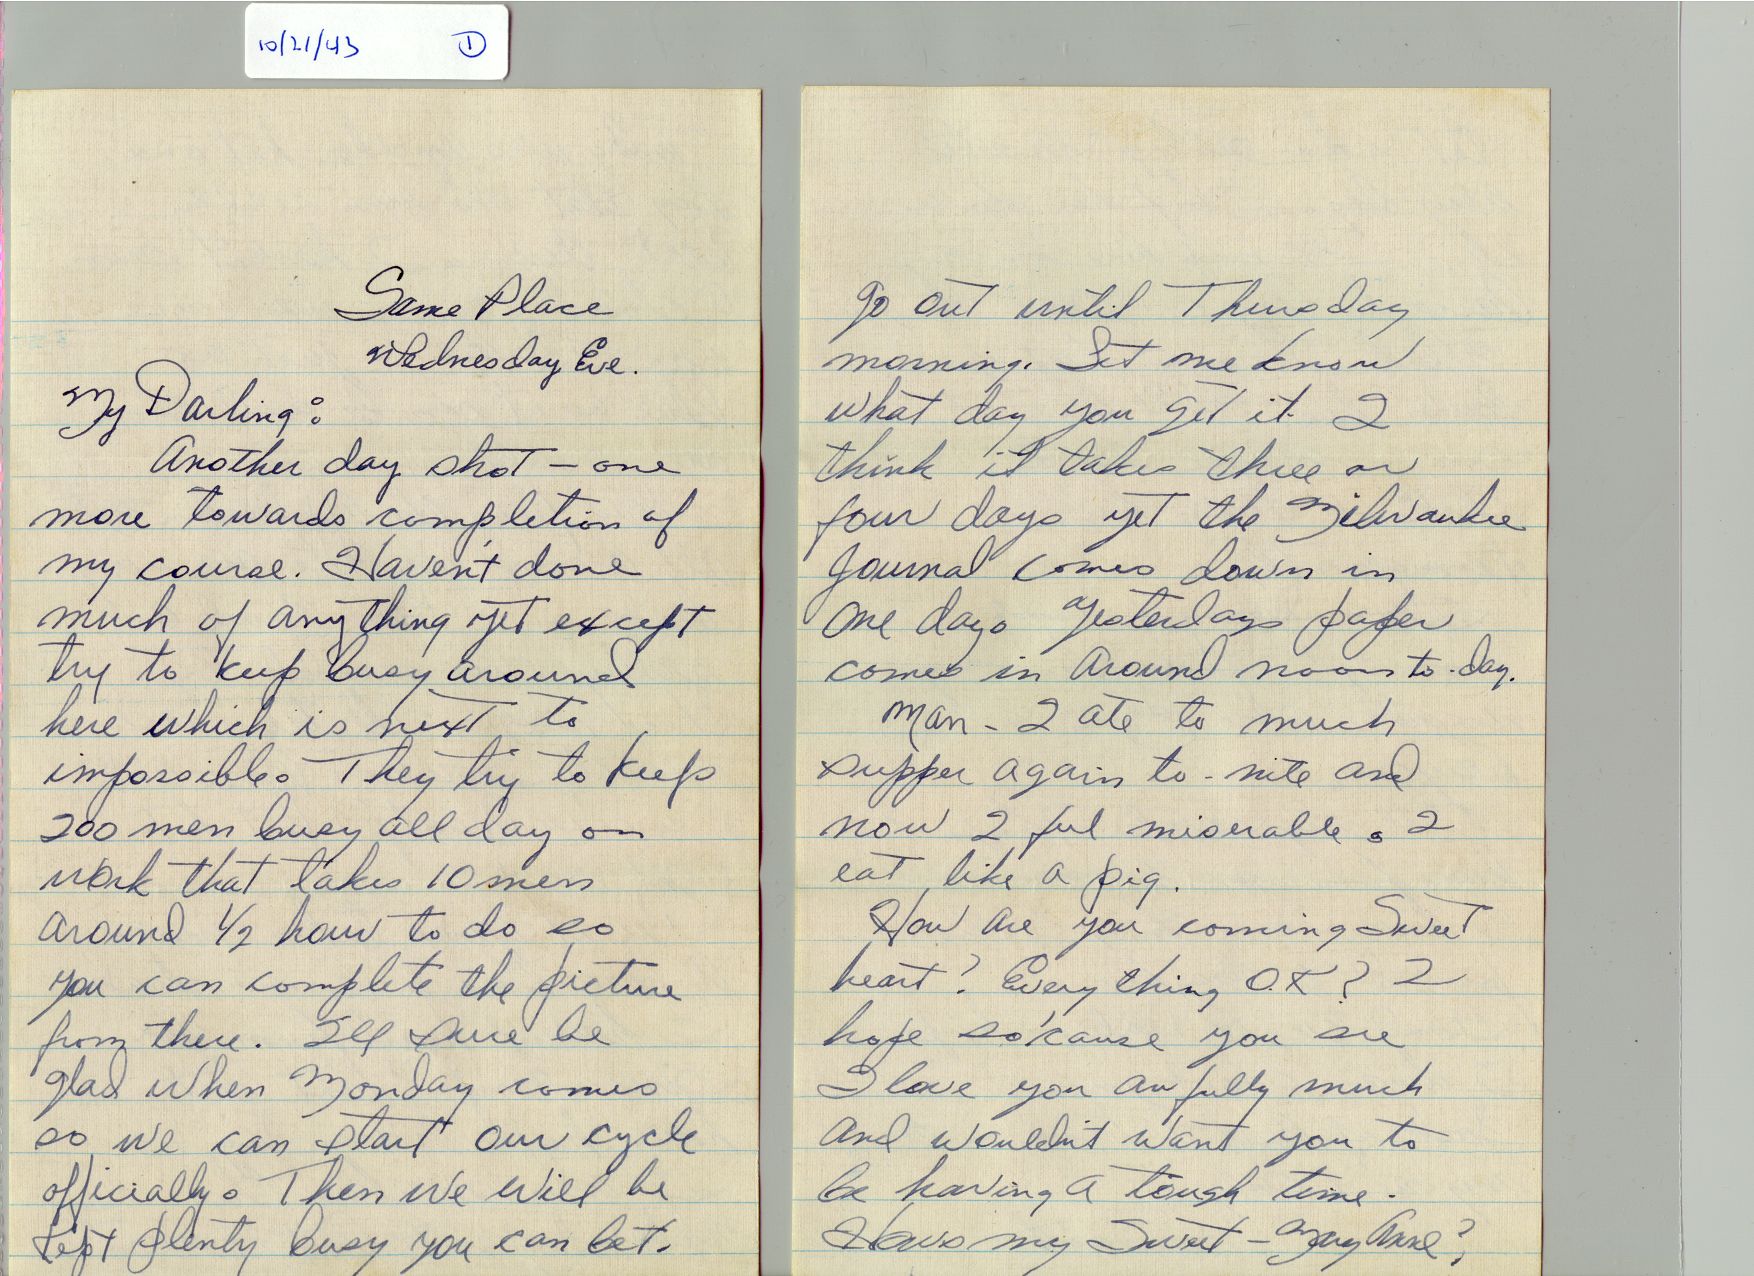 10/21/43 1
Same Place
Wednesday Eve.
My Darling:
Another day shot - one
more towards completion of
my course. Haven't done
much of anything yet except
try to keep busy around
here which is next to
impossible. They try to keep
200 men busy all day on
work that takes 10 men
around 1/2 hour to do so
you can complete the picture
from there. I'll sure be
glad when Monday comes
so we can start our cycle
officially. Then we will be
kept plenty busy you can bet.
go out until Thursday
morning. Let me know
what day you get it. I
think it takes three or
four days yet the Milwaukee
Journal comes down in
one day. Yesterdays paper
comes in around noon to-day.
Man - I ate to much
supper again to-nite and
now I feel miserable. I
eat like a pig.
How are you coming Sweet
heart? Everything O.K? I
hope so 'cause you see
I love you awfully much
and wouldn't want you to
be having a tough time.
Hows my Sweet - Mary Anne?